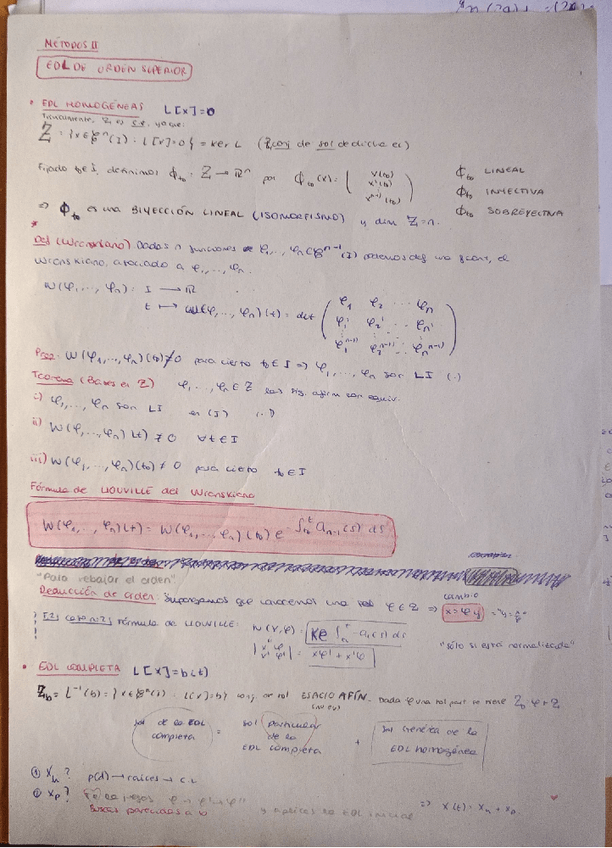 MÉTODOS II
EDL DE ORDEN SUPERIOR
* EDL HOMOGÉNEAS L[x]=0
Z = {x∈C^n(I) : L[x]=0} = ker L (Z conj de sol de dicha ec)
Fijado t0∈I, definimos Φt0 : Z → R^n por Φt0(x) = ( x(t0) x'(t0) ⋮ x^(n-1)(t0) ) Φt0 LINEAL
Φt0 INYECTIVA
Φt0 SOBREYECTIVA
⇒ Φt0 es una BIYECCIÓN LINEAL (ISOMORFISMO) y dim Z=n.
*
Def (Wronskiano) Dadas n funciones φ1,…,φn∈C^(n-1)(I) podemos def una func, el
wronskiano asociado a φ1,…,φn.
W(φ1,…,φn) : I → R
t ↦ W(φ1,…,φn)(t) = det ( φ1 φ2 … φn
φ1' φ2' … φn'
φ1^(n-1) φ2^(n-1) … φn^(n-1) )
Prop. W(φ1,…,φn)(t0)≠0 para cierto t0∈I ⇒ φ1,…,φn son LI (I)
Teorema (Bases en Z) φ1,…,φn∈Z las sig. afirm son equiv.
i) φ1,…,φn son LI en (I)
ii) W(φ1,…,φn)(t) ≠ 0 ∀t∈I
iii) W(φ1,…,φn)(t0) ≠ 0 para cierto t0∈I
Fórmula de LIOUVILLE del Wronskiano
W(φ1,…,φn)(t) = W(φ1,…,φn)(t0) e^(-∫_{t0}^{t} a_{n-1}(s) ds)
"Para rebajar el orden" cambio
Reducción de orden: Supongamos que conocemos una sol φ∈Z ⇒ x=φy
caso n=2 Fórmula de LIOUVILLE: W(x,φ) = Ke^(∫ -a1(s) ds)
"Sólo si está normalizada"
* EDL COMPLETA L[x]=b(t)
Zb = L^-1(b) = {x∈C^n(I) : L[x]=b} conj. de sol ESPACIO AFÍN. Dada φ una sol part se tiene Zb = φ+Z
sol de la EDL completa = sol particular de la EDL completa + sol genérica de la EDL homogénea
① xh? p(λ) → raíces → C.L
② xp? ⇒ x(t) = xh + xp.
buscas parecidas a b y aplicas la EDL inicial